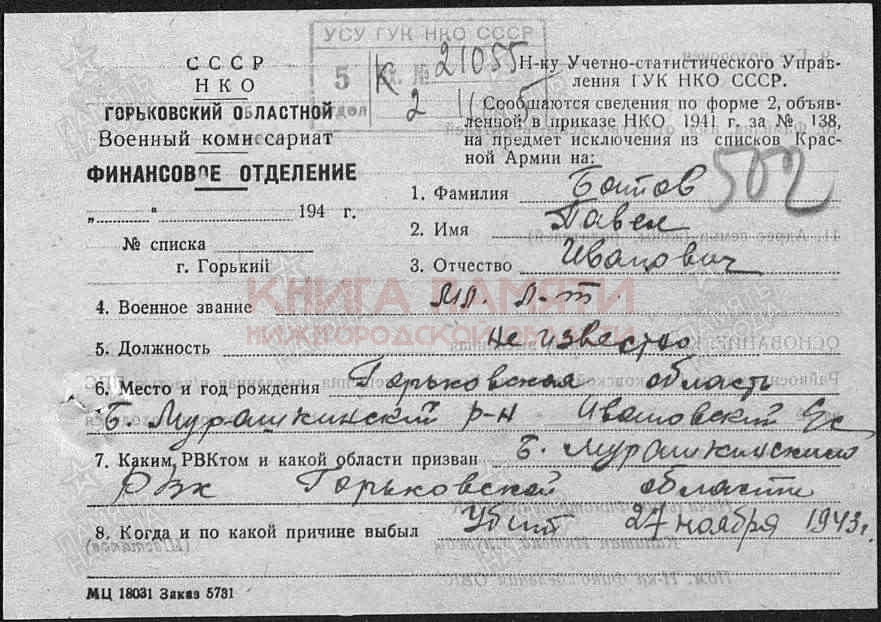 УСУ ГУК НКО СССР
5
К Вх. № 21055
отдел
2 11 5
СССР
НКО
ГОРЬКОВСКИЙ ОБЛАСТНОЙ
Военный комиссариат
ФИНАНСОВОЕ ОТДЕЛЕНИЕ
„ “ 194 г.
№ списка
г. Горький
Н-ку Учетно-статистического Управ-
ления ГУК НКО СССР.
Сообщаются сведения по форме 2, объяв-
ленной в приказе НКО 1941 г. за № 138,
на предмет исключения из списков Крас-
ной Армии на:
502
1. Фамилия Батов
2. Имя Павел
3. Отчество Иванович
КНИГА ПАМЯТИ
НИЖЕГОРОДСКОЙ ОБЛАСТИ
4. Военное звание Мл. л-т
5. Должность не известно
6. Место и год рождения Горьковская область
Б. Мурашкинский р-н Ивановский с/с
7. Каким РВКтом и какой области призван Б. Мурашкинский
РВК Горьковской области
8. Когда и по какой причине выбыл Убит 27 ноября 1943 г.
МЦ 18031 Заказ 5731